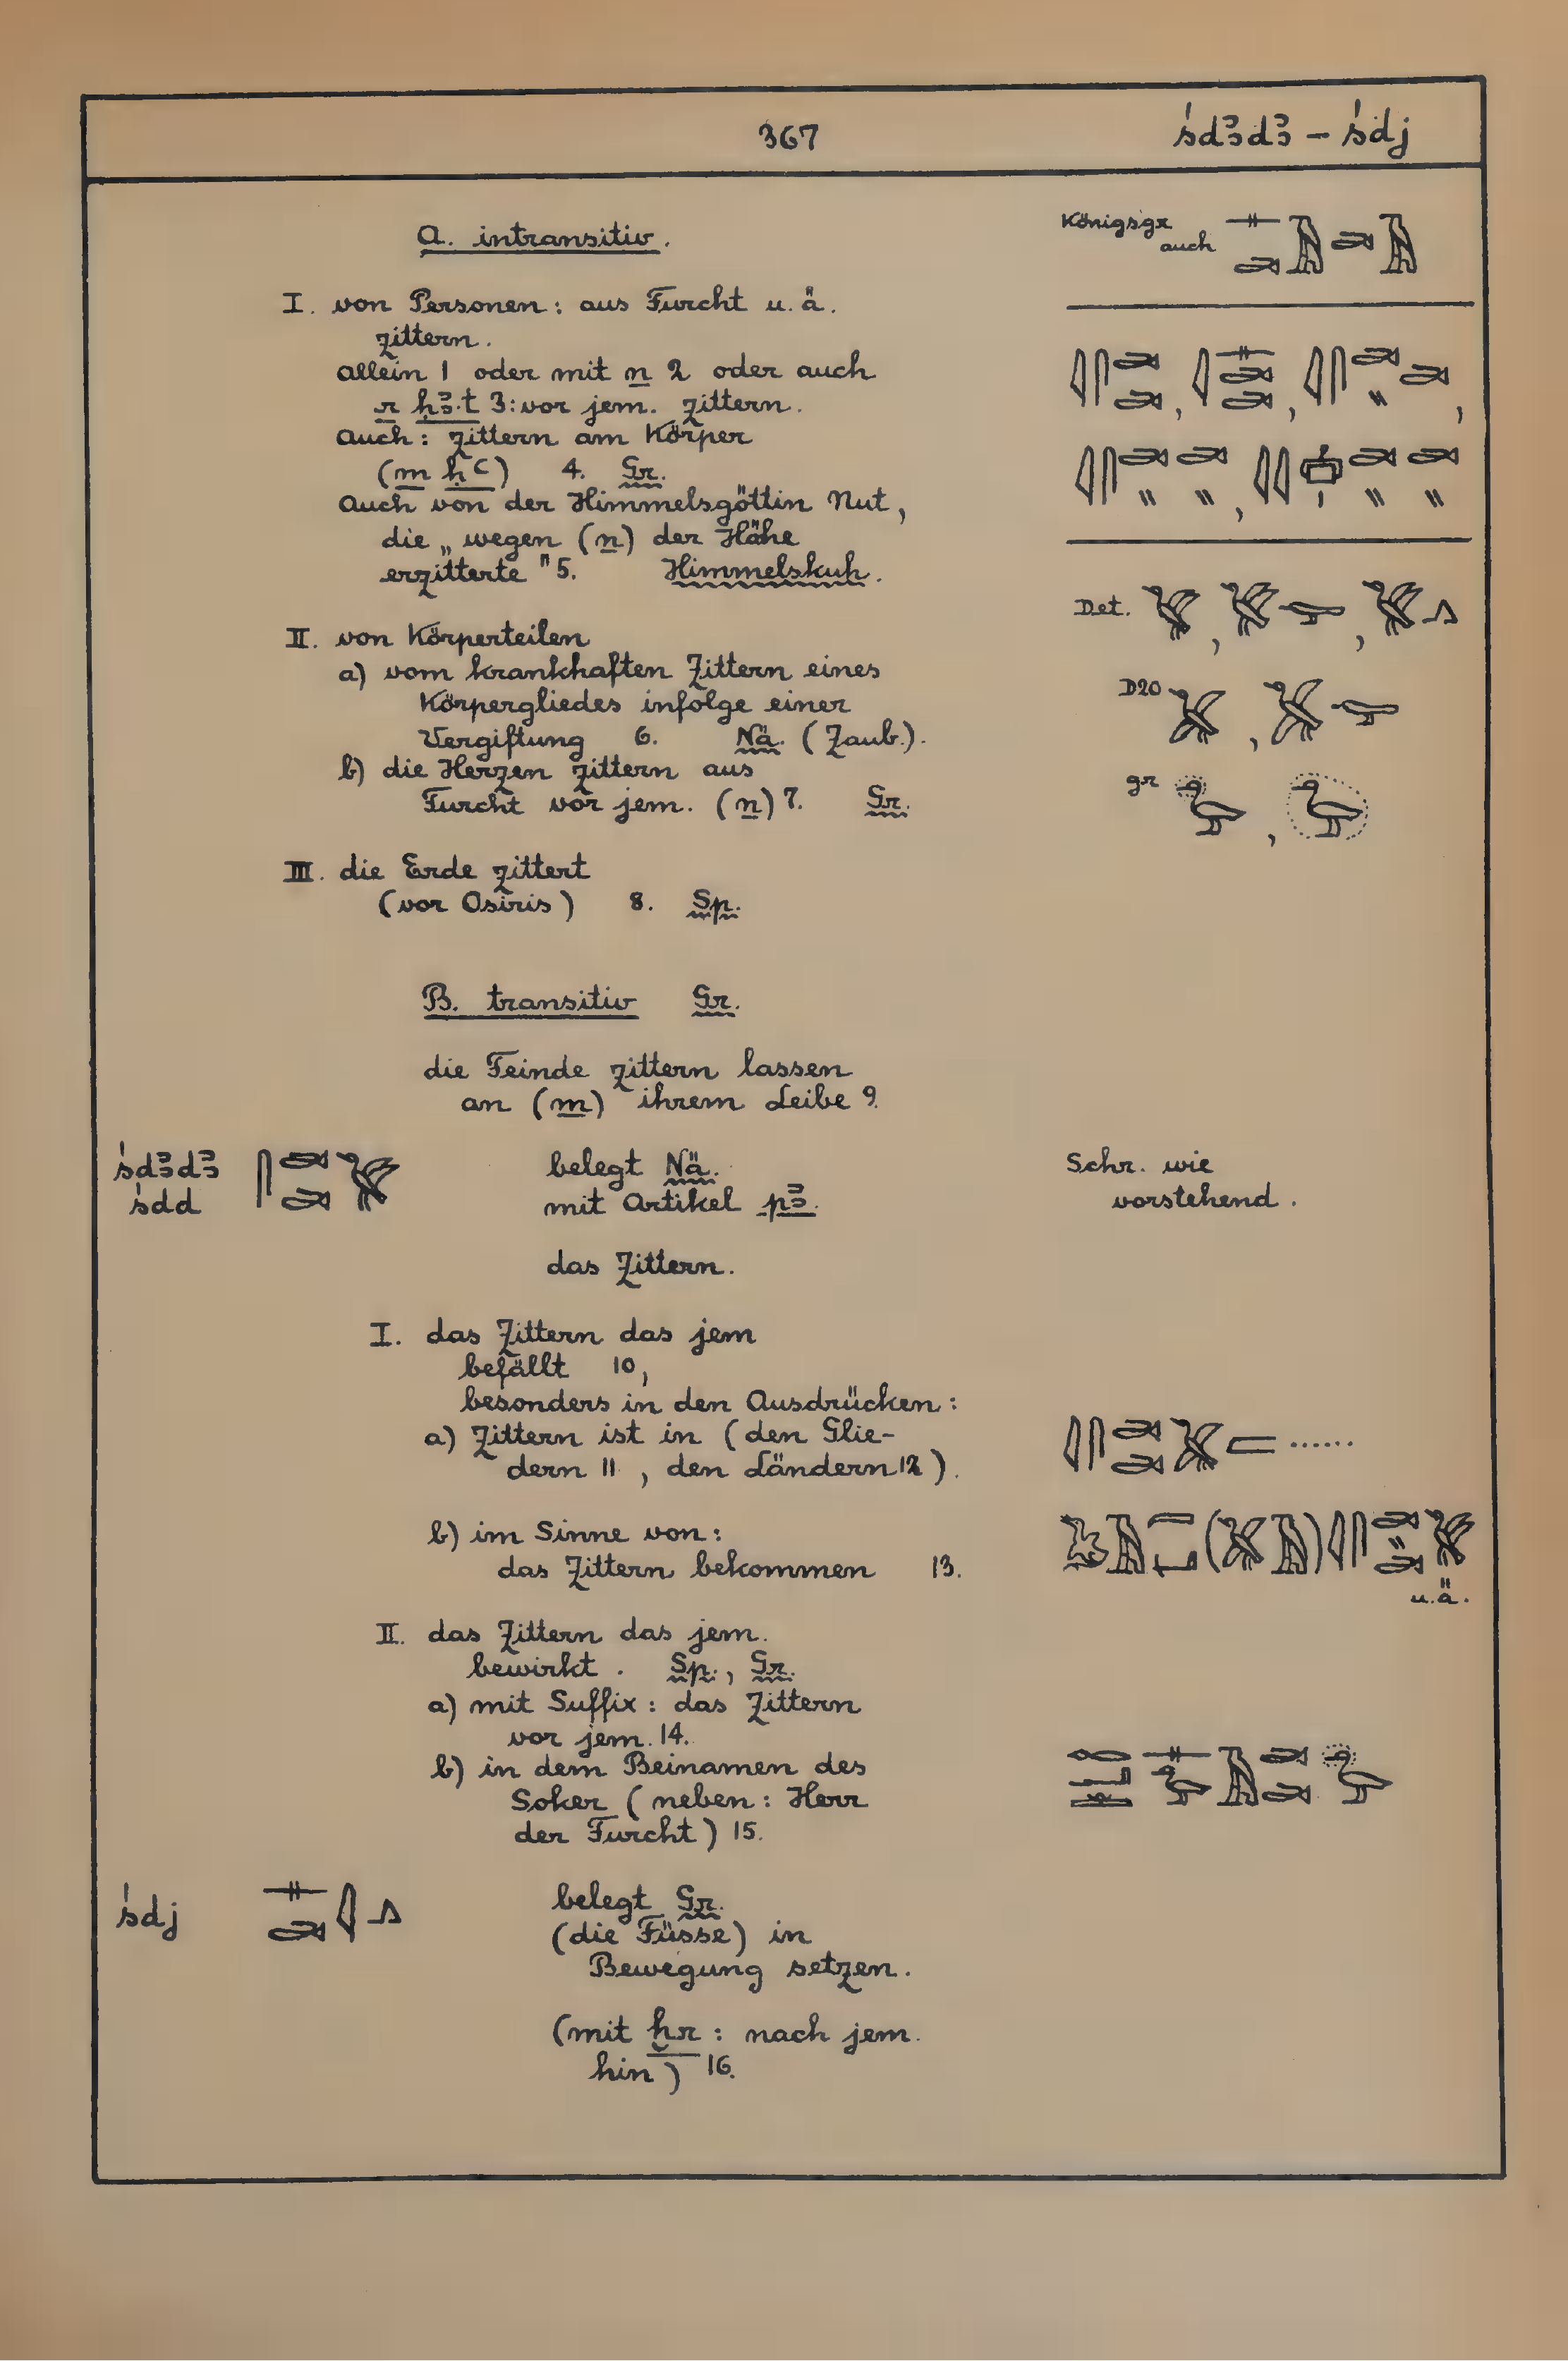 367
śdꜣdꜣ – śdj
A. intransitiv.
Königsgr
auch
I. von Personen: aus Furcht u. ä.
zittern.
allein 1 oder mit n 2 oder auch
r ḥꜣ.t 3: vor jem. zittern.
Auch: zittern am Körper
(m ḥꜥ) 4. Gr.
Auch von der Himmelsgöttin Nut,
die „wegen (n) der Höhe
erzitterte" 5. Himmelskuh.
Det.
II. von Körperteilen
a) vom krankhaften Zittern eines
Körpergliedes infolge einer
D20
Vergiftung 6. Nä. (Zaub.).
b) die Herzen zittern aus
Furcht vor jem. (n) 7. Gr.
gr
III. die Erde zittert
(vor Osiris) 8. Sp.
B. transitiv Gr.
die Feinde zittern lassen
an (m) ihrem Leibe 9.
śdꜣdꜣ
śdd
belegt Nä.
mit Artikel pꜣ.
Schr. wie
vorstehend.
das Zittern.
I. das Zittern das jem
befällt 10,
besonders in den Ausdrücken:
a) Zittern ist in (den Glie-
dern 11, den Ländern 12).
b) im Sinne von:
das Zittern bekommen 13.
u.ä.
II. das Zittern das jem.
bewirkt. Sp., Gr.
a) mit Suffix: das Zittern
vor jem. 14.
b) in dem Beinamen des
Soker (neben: Herr
der Furcht) 15.
śdj
belegt Gr.
(die Füsse) in
Bewegung setzen.
(mit ḫr: nach jem.
hin) 16.